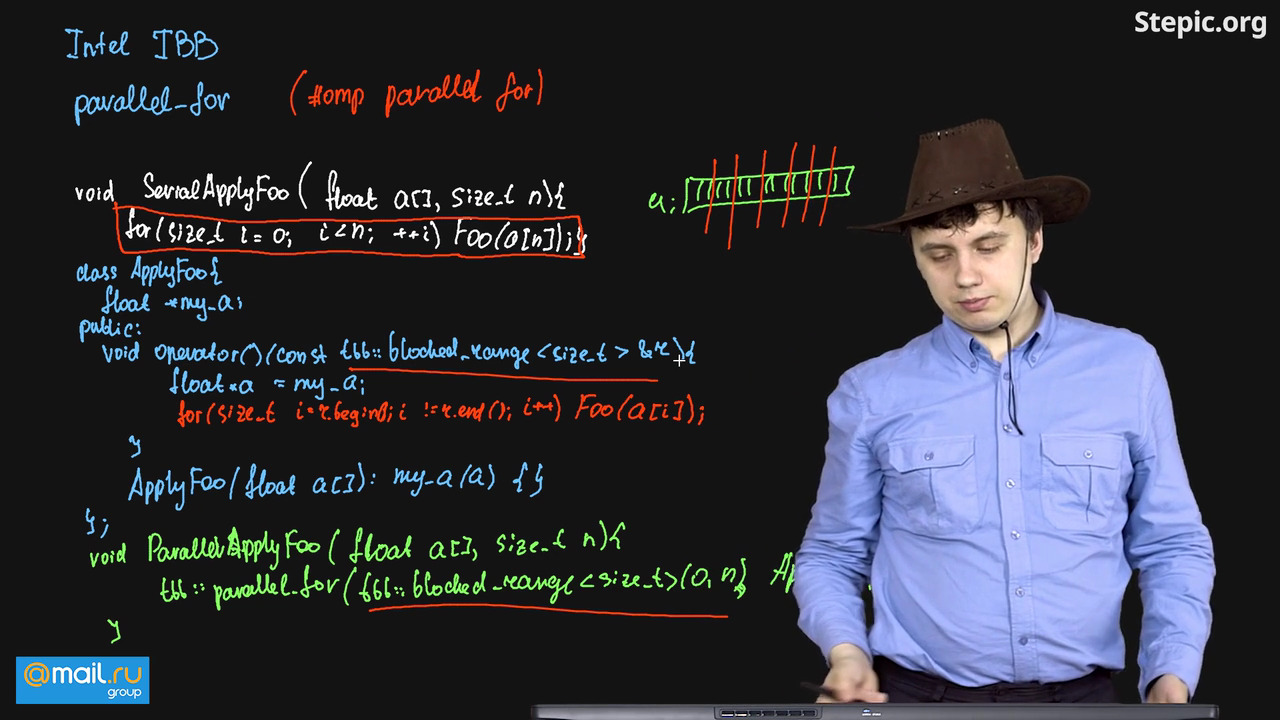 Stepic.org
Intel TBB
parallel_for (#omp parallel for)
void SerialApplyFoo ( float a[], size_t n){
for(size_t i=0; i<n; ++i) Foo(a[n]);}
a:
class ApplyFoo{
float *my_a;
public:
void operator()(const tbb::blocked_range<size_t> &r){
float*a = my_a;
for(size_t i=r.begin(); i !=r.end(); i++) Foo(a[i]);
}
ApplyFoo(float a[]): my_a(a) {}
};
void ParallelApplyFoo( float a[], size_t n){
tbb::parallel_for(tbb::blocked_range<size_t>(0, n),
}
@mail.ru
group